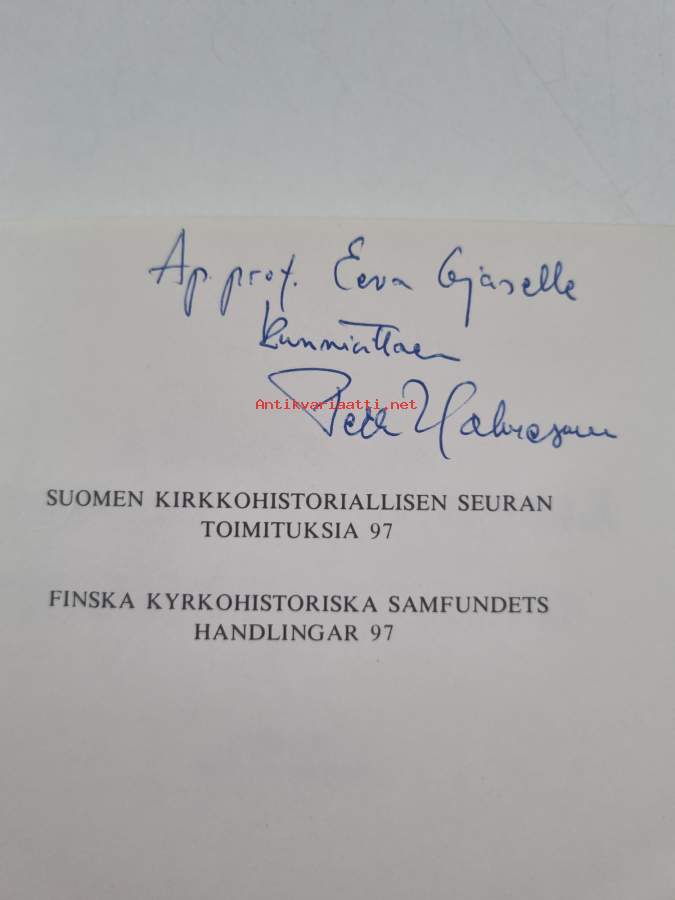 Ap. prof. Eeva Ojaselle
kunnioittaen
Antikvariaatti.net
SUOMEN KIRKKOHISTORIALLISEN SEURAN
TOIMITUKSIA 97
FINSKA KYRKOHISTORISKA SAMFUNDETS
HANDLINGAR 97